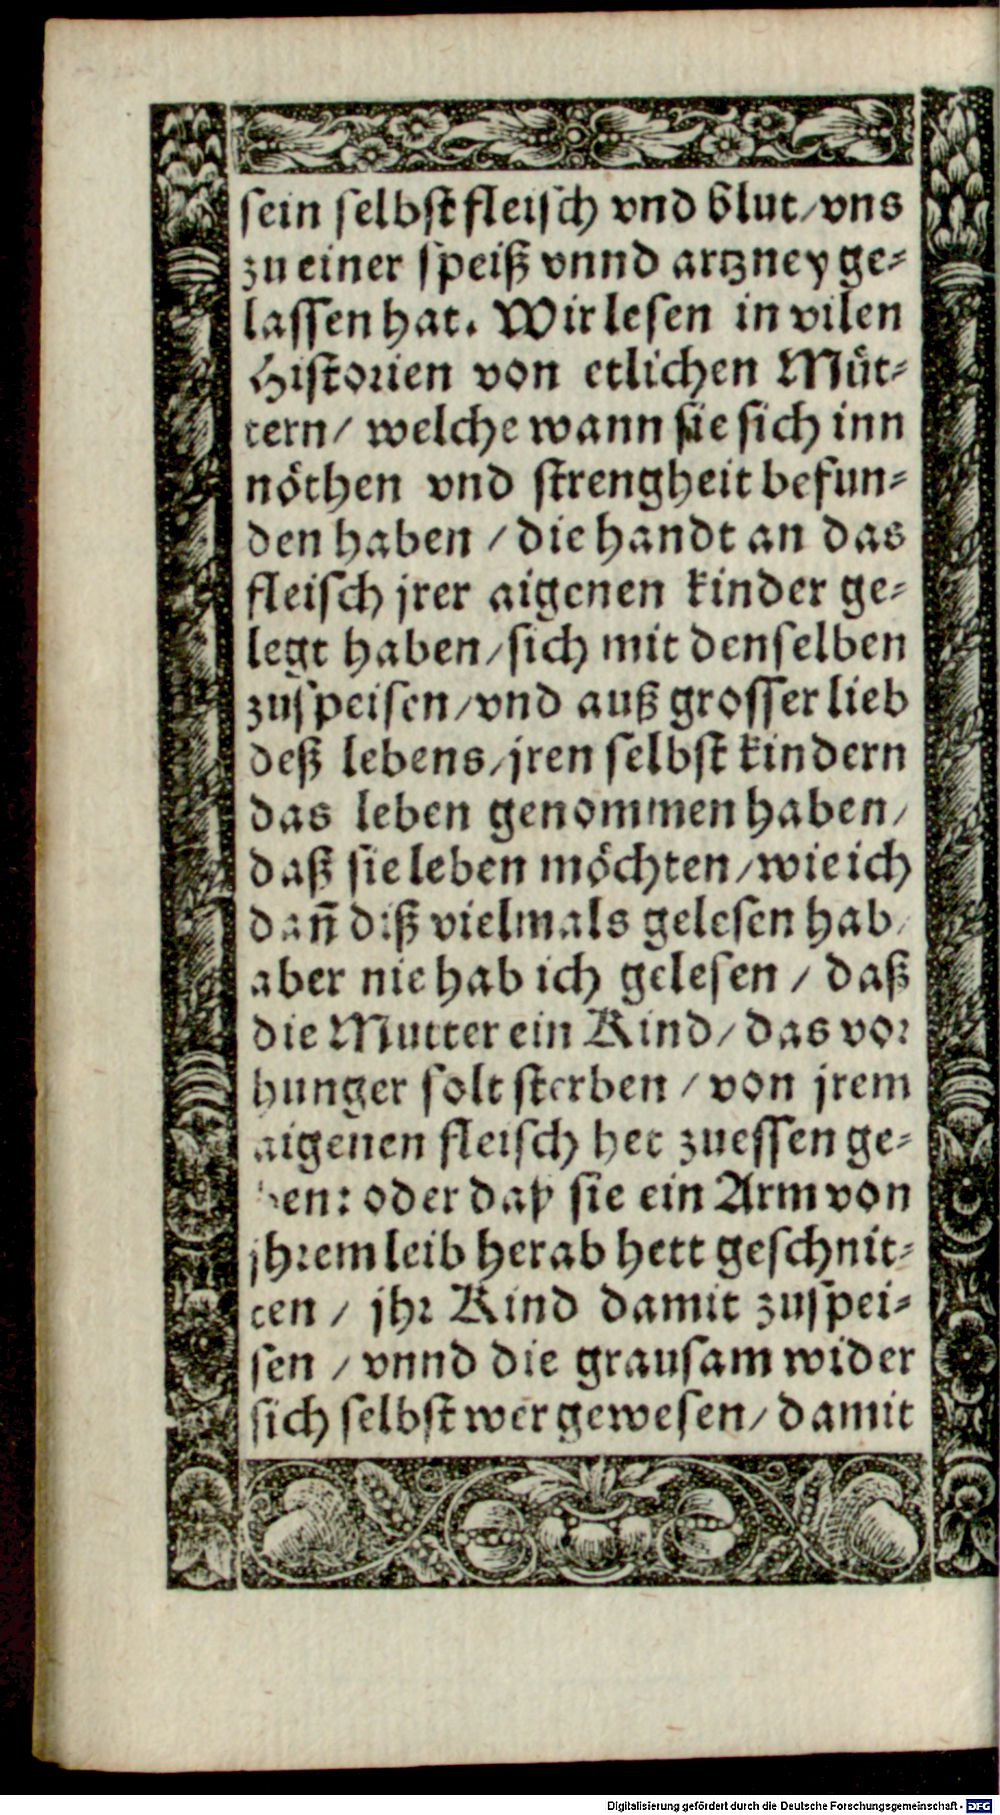 sein selbst fleisch vnd blut/vns
zu einer speiß vnnd artzney ge-
lassen hat. Wir lesen in vilen
Historien von etlichen Müt-
tern/ welche wann sie sich inn
nöthen vnd strengheit befun-
den haben / die handt an das
fleisch jrer aigenen kinder ge-
legt haben/sich mit denselben
zuspeisen/vnd auß grosser lieb
deß lebens/jren selbst kindern
das leben genommen haben/
daß sie leben möchten/wie ich
dañ diß vielmals gelesen hab/
aber nie hab ich gelesen / daß
die Mutter ein Kind/ das vor
hunger solt sterben / von jrem
aigenen fleisch het zuessen ge-
ben: oder daß sie ein Arm von
jhrem leib herab hett geschnit-
ten / jhr Kind damit zuspei-
sen / vnnd die grausam wider
sich selbst wer gewesen/ damit
Digitalisierung gefördert durch die Deutsche Forschungsgemeinschaft - DFG